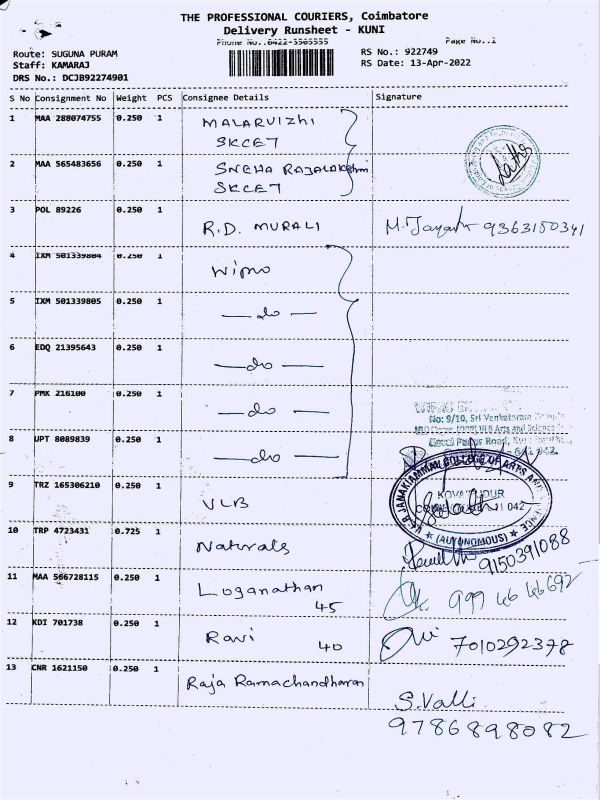 THE PROFESSIONAL COURIERS, Coimbatore
Delivery Runsheet - KUNI
Phone No.:0422-5565555 Page No.:1
Route: SUGUNA PURAM RS No.: 922749
Staff: KAMARAJ RS Date: 13-Apr-2022
DRS No.: DCJB92274901
S No Consignment No Weight PCS Consignee Details Signature
1 MAA 288074755 0.250 1 MALARVIZHI
SKCET
2 MAA 565483656 0.250 1 SNEHA RAJALAKshmi
SKCET
Latha
3 POL 89226 0.250 1 R.D. MURALI M. Jayanth 9363150341
4 IXM 501339804 0.250 1 Wipro
5 IXM 501339805 0.250 1 — do —
6 EDQ 21395643 0.250 1 — do —
7 PMK 216100 0.250 1 — do —
No: 9/10, Sri Venkataram
Arts and Science
8 UPT 8089839 0.250 1 — do —
Road,
9 TRZ 165306210 0.250 1 VLB
V.L.B. JANAKIAMMAL COLLEGE OF ARTS AND SCIENCE
KOVAIPUDUR
COIMBATORE 641 042
(AUTONOMOUS)
10 TRP 4723431 0.725 1 Naturals 9150391088
11 MAA 566728115 0.250 1 Loganathan
45 999 46 46692
12 KDI 701738 0.250 1 Ravi 40 7010292378
13 CNR 1621150 0.250 1 Raja Ramachandharan
S. Valli
9786898082